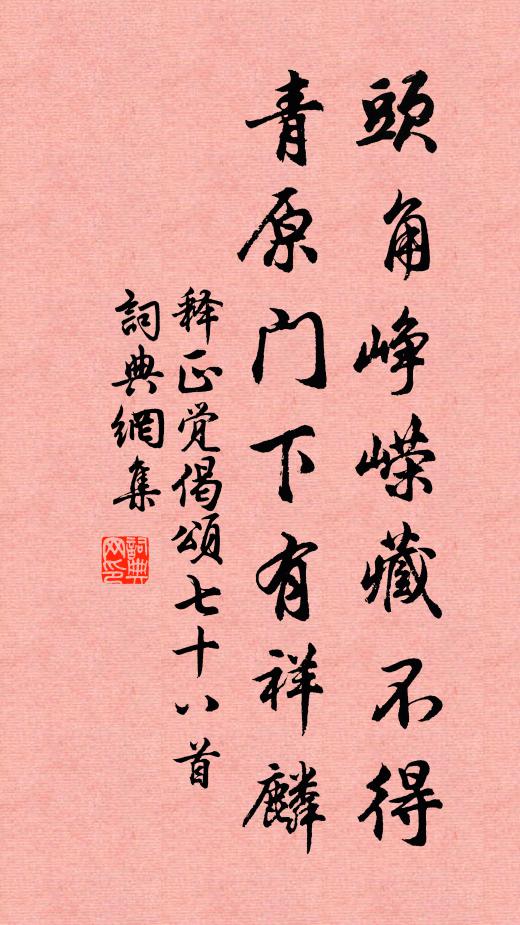 頭角崢嶸藏不得
青原門下有祥麟
释正觉偈頌七十八首
詞典網集
詞典
网印